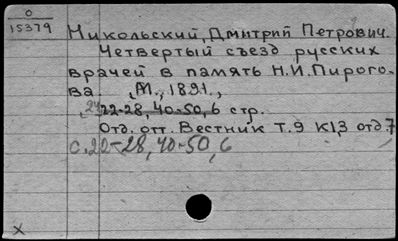 0
15379
Никольский, Дмитрий Петрович.
Четвертый съезд русских
врачей в память Н.И.Пирого-
ва. М., 1891.,
22-28, 40-50, 6 стр.
Отд. отт. Вестник т.9 к13 отд.7
с.22-28, 40-50, 6
x